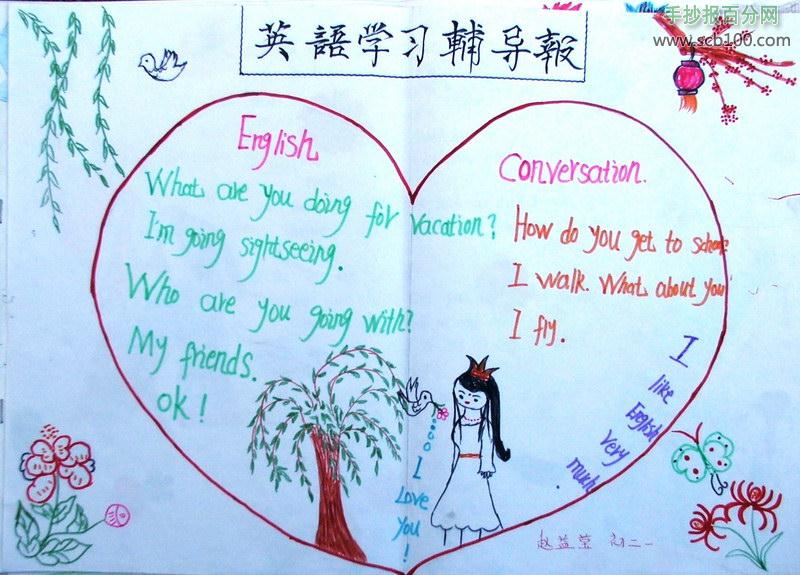 手抄报百分网
www.scb100.com
英語学习輔导報
English
What are you doing for vacation?
I'm going sightseeing.
Who are you going with?
My friends.
ok!
Conversation.
How do you get to school?
I walk. What about you
I fly.
I like English very much.
I Love you!
赵益莹 初二一